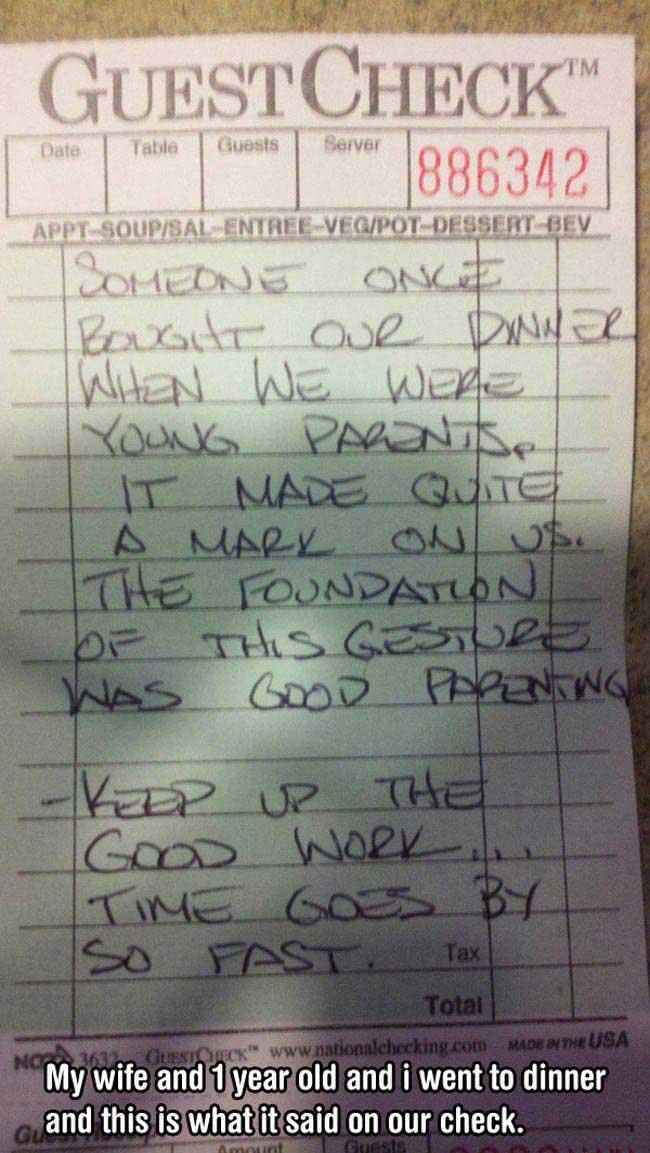 GUESTCHECK™
Date Table Guests Server 886342
APPT-SOUP/SAL-ENTREE-VEG/POT-DESSERT-BEV
SOMEONE ONCE
BOUGHT OUR DINNER
WHEN WE WERE
YOUNG PARENTS.
IT MADE QUITE
A MARK ON US.
THE FOUNDATION
OF THIS GESTURE
WAS GOOD PARENTING
-KEEP UP THE
GOOD WORK....
TIME GOES BY
SO FAST. Tax
Total
3632 GUESTCHECK™ www.nationalchecking.com MADE IN THE USA
My wife and 1 year old and i went to dinner
and this is what it said on our check.
Amount Guests